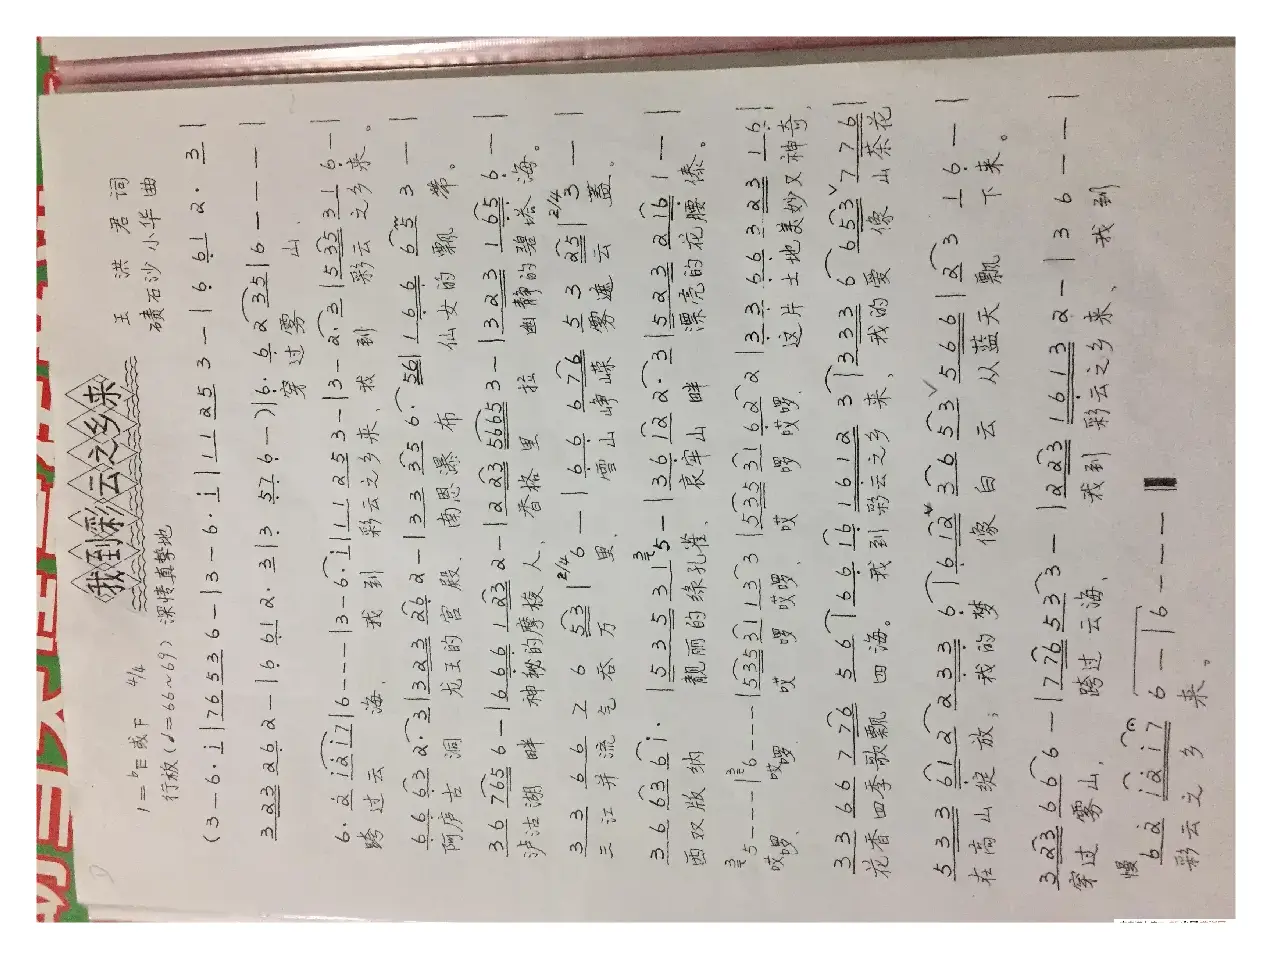 我到彩云之乡来
1=ᵇE或F 4/4
王洪君 词
行板(♩=66~69) 深情真挚地
碛石沙 小华 曲
(3-6·i|76536-|3-6·i|11253-|6612·3|
323262-|6612·3|3·576-)|6·6235|6---|
穿过雾山、
6·2i2i7|6----|3-6·i|11253-|3-2·3|535316-|
跨过云海, 我到彩云之乡来、我到彩云之乡来。
66632·3|3233262-|33356·56|1666653-|
阿庐古洞龙王的宫殿、南恩瀑布仙女的飘带。
367656-|6661232-|223566653-|3231656-|
泸沽湖畔神秘的摩梭人、香格里拉幽静的碧塔海。
33662653|2/46-|6667653253-|
三江并流气吞万里、雪山峥嵘雾遮云盖。
366636i·|53535315-|36122·3|52322161-|
西双版纳靓丽的绿孔雀、哀牢山畔漂亮的花腰傣。
5---|6----|53531133|53531622|336632316|
哎啰、哎啰、哎啰哎啰、哎啰哎啰、这片土地美妙又神奇、
336677656|666161612 3|333665377 6|
花香四季歌飘四海。我到彩云之乡来、我的爱像山茶花
53336122336|61236535666|2316-|
在高山绽放；我的梦像白云从蓝天飘下来。
323666-|7765333-|223161132-|36---|
穿过雾山、跨过云海、我到彩云之乡来、我到
慢
62i2i76-|6---‖
彩云之乡来。